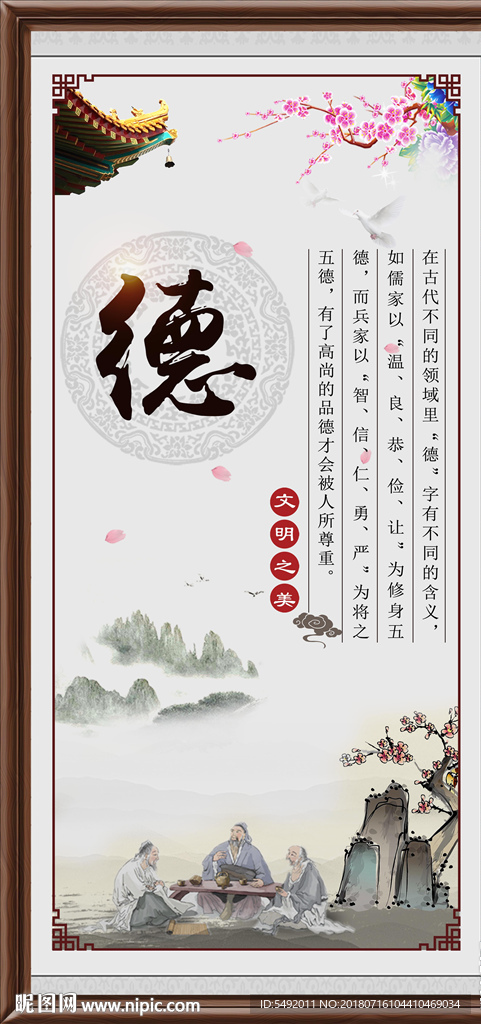 德
在古代不同的领域里“德”字有不同的含义，
如儒家以“温、良、恭、俭、让”为修身五
德，而兵家以“智、信、仁、勇、严”为将之
五德，有了高尚的品德才会被人所尊重。
文明之美
昵图网 www.nipic.com
ID:5492011 NO:20180716104410469034